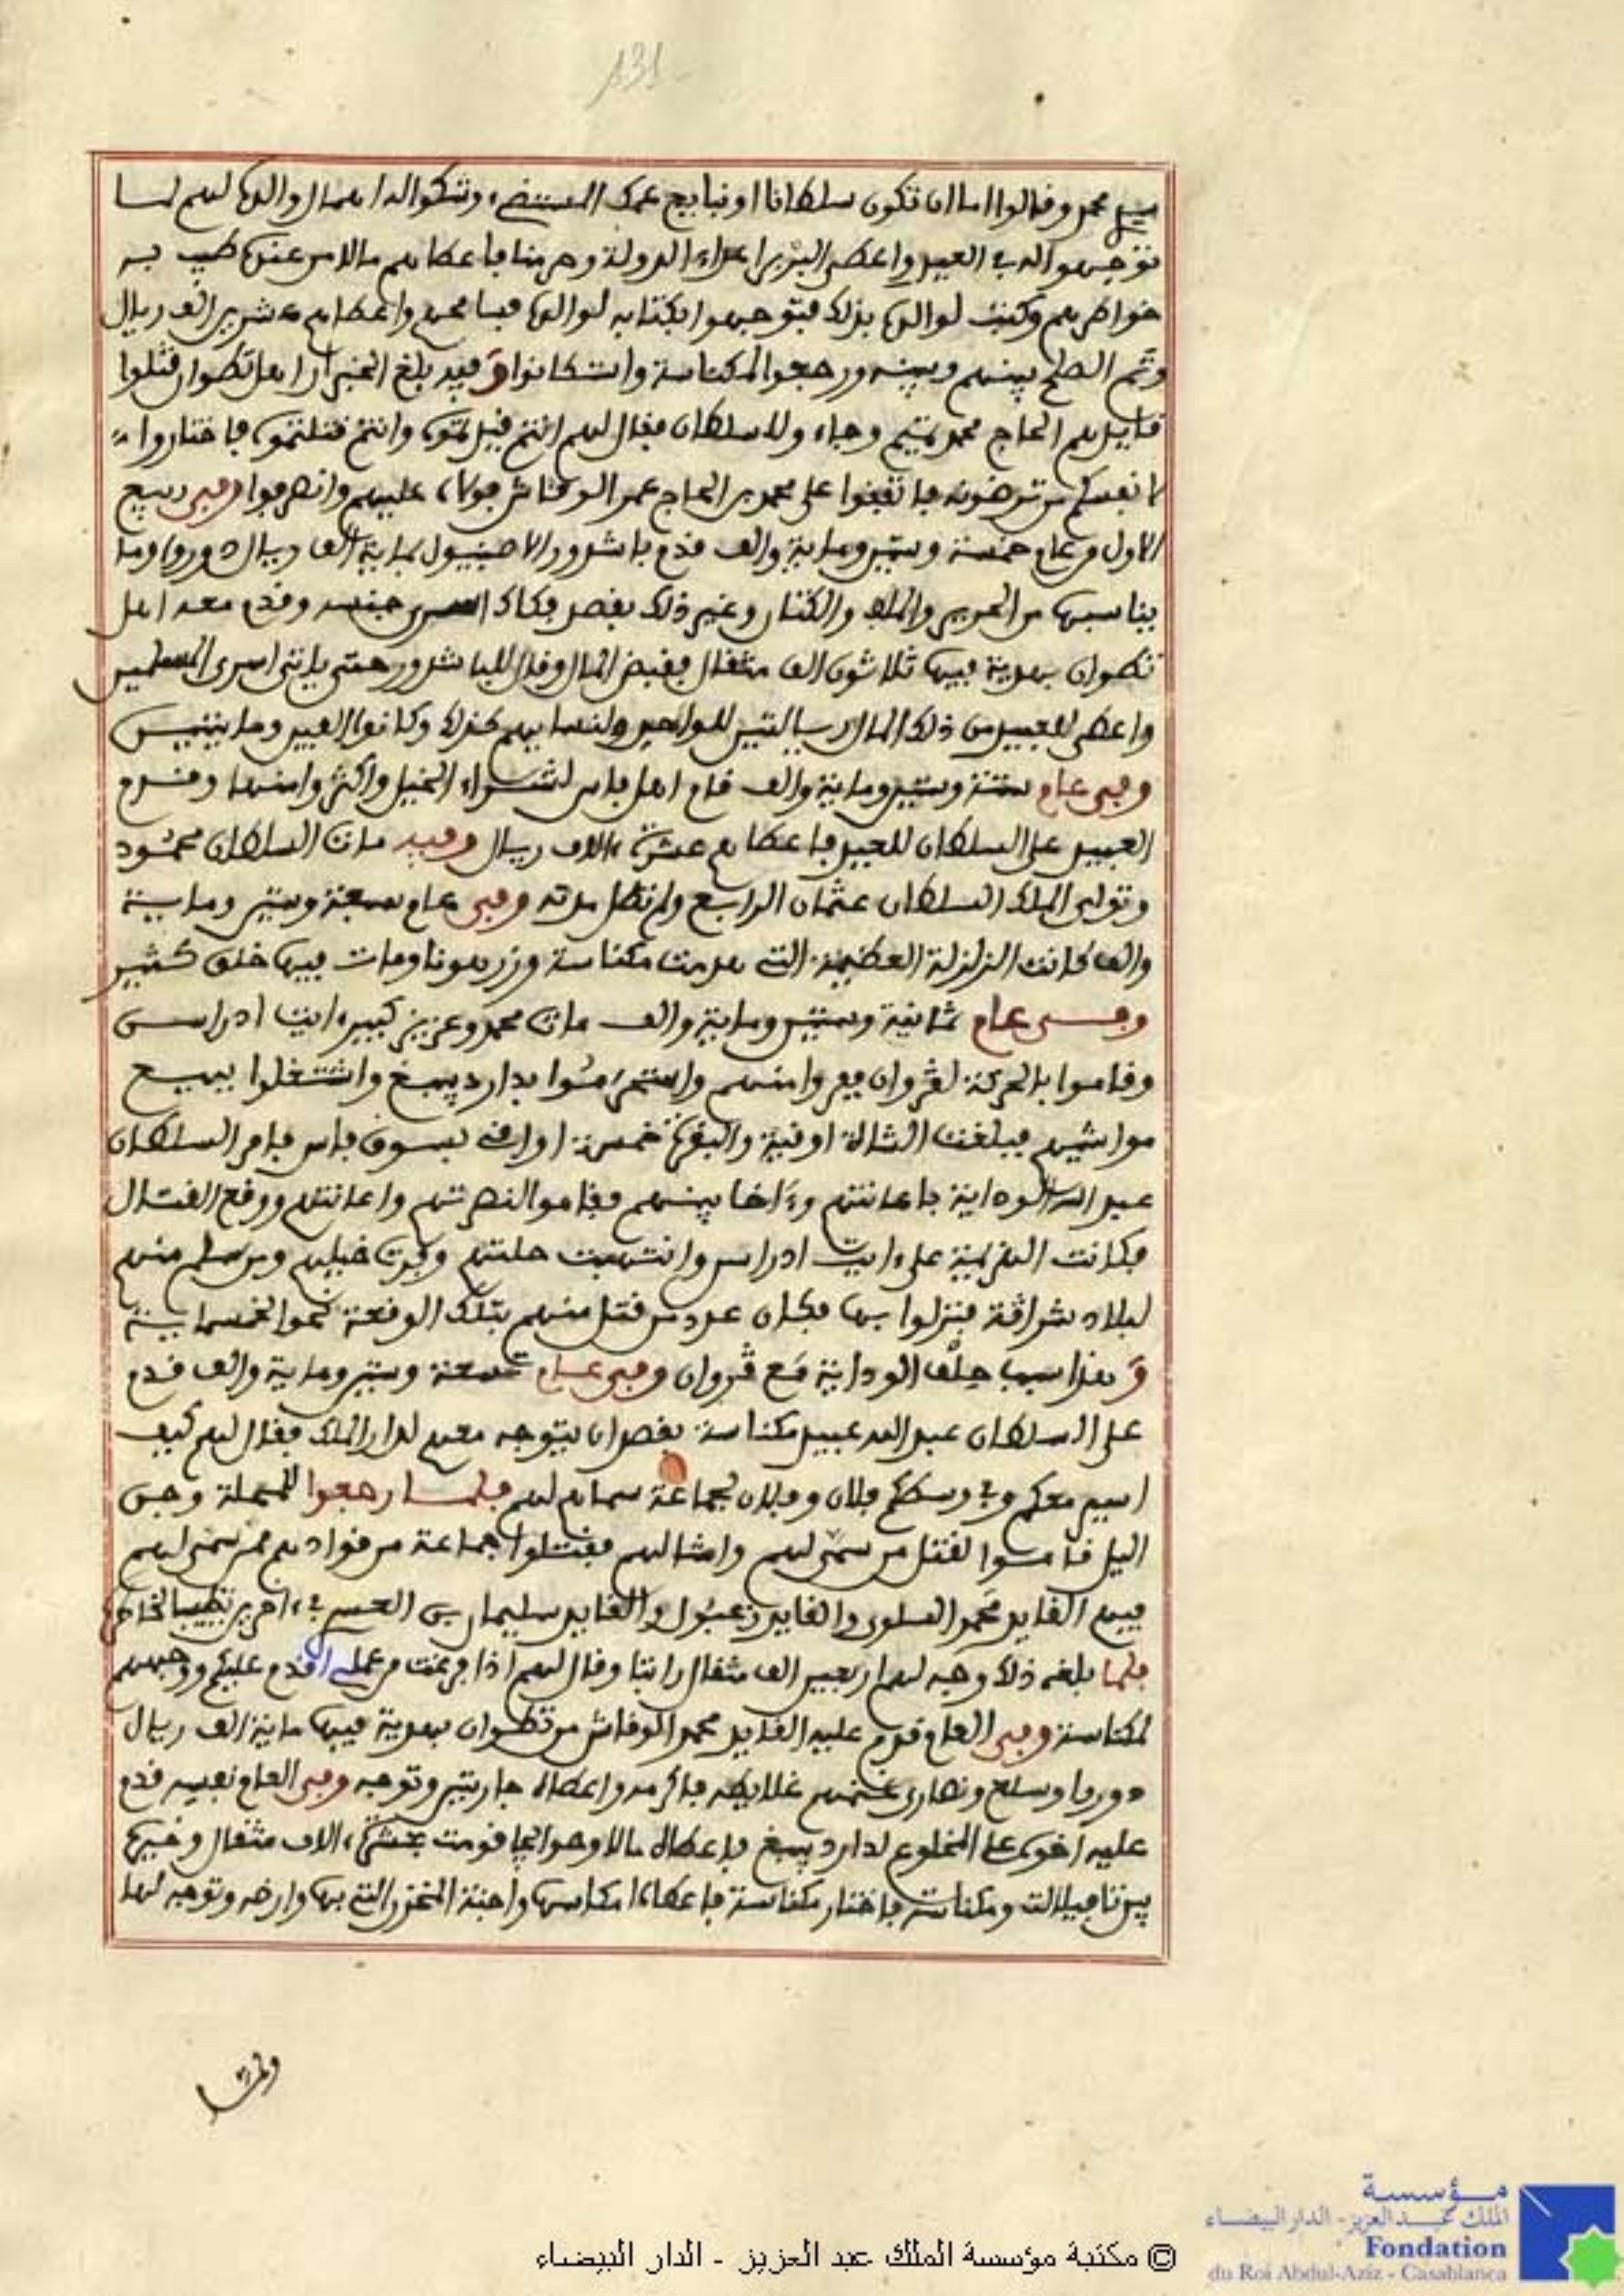 131
سيدي محمد وقالوا اما ان تكون سلطانا او نبايع عمك المستضيء وشكوا له اهمال والده لهم لما
توجهوا اليه في العيد واعطى البربر اعداء الدولة وحرمنا فاعطاهم مالا من عنده طيب به
خواطرهم وكتب لوالده بذلك فتوجهوا بكتابه لوالده فسامحهم واعطاهم عشرين الف ريال
وتم الصلح بينهم وبينه ورجعوا لمكناسة واستكانوا وفيه بلغ الخبر ان اهل تطوان قتلوا
قايدهم الحاج محمد تميم وجاءوا للسلطان فقال لهم انتم قيلتموه وانتم قتلتموه فاختاروا
لانفسكم من ترضونه فاتفقوا على محمد بن الحاج عمر الوقاش فولاه عليهم وانصرفوا وفي ربيع
الاول من عام خمسة وستين وماية والف قدم باشدور الاصبنيول بماية الف ريال دورو وما
يناسبها من الحرير والملف والكتان وغير ذلك بقصد فكاك اسرى جنسه وقدم معه اهل
تطوان بهدية فيها ثلاثون الف مثقال فقبض المال وقال للباشدور حتى ياتي اسرى المسلمين
واعطى للعبيد من ذلك المال ريالتين للواحد ولنسايهم كذلك وكانوا الفين ومايتين
وفي عام ستة وستين وماية والف قام اهل فاس لشراء الخيل واكثروا منها وقدم
العبيد على السلطان للعيد فاعطاهم عشرة ءالاف ريال وفيه مات السلطان محمود
وتولى الملك السلطان عثمان الرابع ولم تطل مدته وفي عام سبعة وستين وماية
والف كانت الزلزلة العظيمة التي هدمت مكناسة وزرهونا ومات فيها خلق كثير
وفي عام ثمانية وستين وماية والف مات محمد وعزيز كبير ايت ادراسن
وقاموا بالحركة لڭروان ففروا منهم واستحرموا بدار دبيبغ واشتغلوا ببيع
مواشيهم فبلغت الشاة اوقية والبقرة خمسة اواقي بسوق فاس فامر السلطان
عبد الله الوداية باعانتهم وءاخا بينهم فقاموا لنصرتهم واعانتهم ووقع القتال
فكانت الهزيمة على ايت ادراسن وانتهبت حلتهم وفرت خيلهم ومن سلم منهم
لبلاد شراڭة فنزلوا بها فكان عدد من قتل منهم بتلك الوقعة نحو الخمسماية
وهذا سبب حلف الوداية مع ڭروان وفي عام تسعة وستين وماية والف قدم
على السلطان عبد الله عبيد مكناسة بقصد ان يتوجه معهم لدار الملك فقال لهم كيف
اسير معكم وفي وسطكم فلان وفلان لجماعة سماهم لهم فلما رجعوا للمحلة وجن
اليل قاموا لقتل من سمى لهم وامثالهم فقتلوا جماعة من قوادهم ممن سمى لهم
فيهم القايد محمد السلوي والقايد زعبول والقايد سليمان بن العسري في اخرين تطييبا لخاطره
فلما بلغه ذلك وجه لهم اربعين الف مثقال راتبا وقال لهم اذا فرغت من عملي اقدم عليكم ووجههم
لمكناسة وفي العام قدم عليه القايد محمد الوقاش من تطوان بهدية فيها ماية الف ريال
دورو وسلع ونصارى غنمهم غلايطه فاكرمه واعطاه جاريتين وتوجه وفي العام نفسه قدم
عليه اخوه علي المخلوع لدار دبيبغ فاعطاه مالا وحوايج قومت بعشرة ءالاف مثقال وخيره
بين تافيلالت ومكناسة فاختار مكناسة فاعطاه امكاسها واجنة المخزن التي بها وارضه وتوجه لها
© مكتبة مؤسسة الملك عبد العزيز - الدار البيضاء
مؤسسة
الملك عبد العزيز - الدار البيضاء
Fondation
du Roi Abdul-Aziz - Casablanca